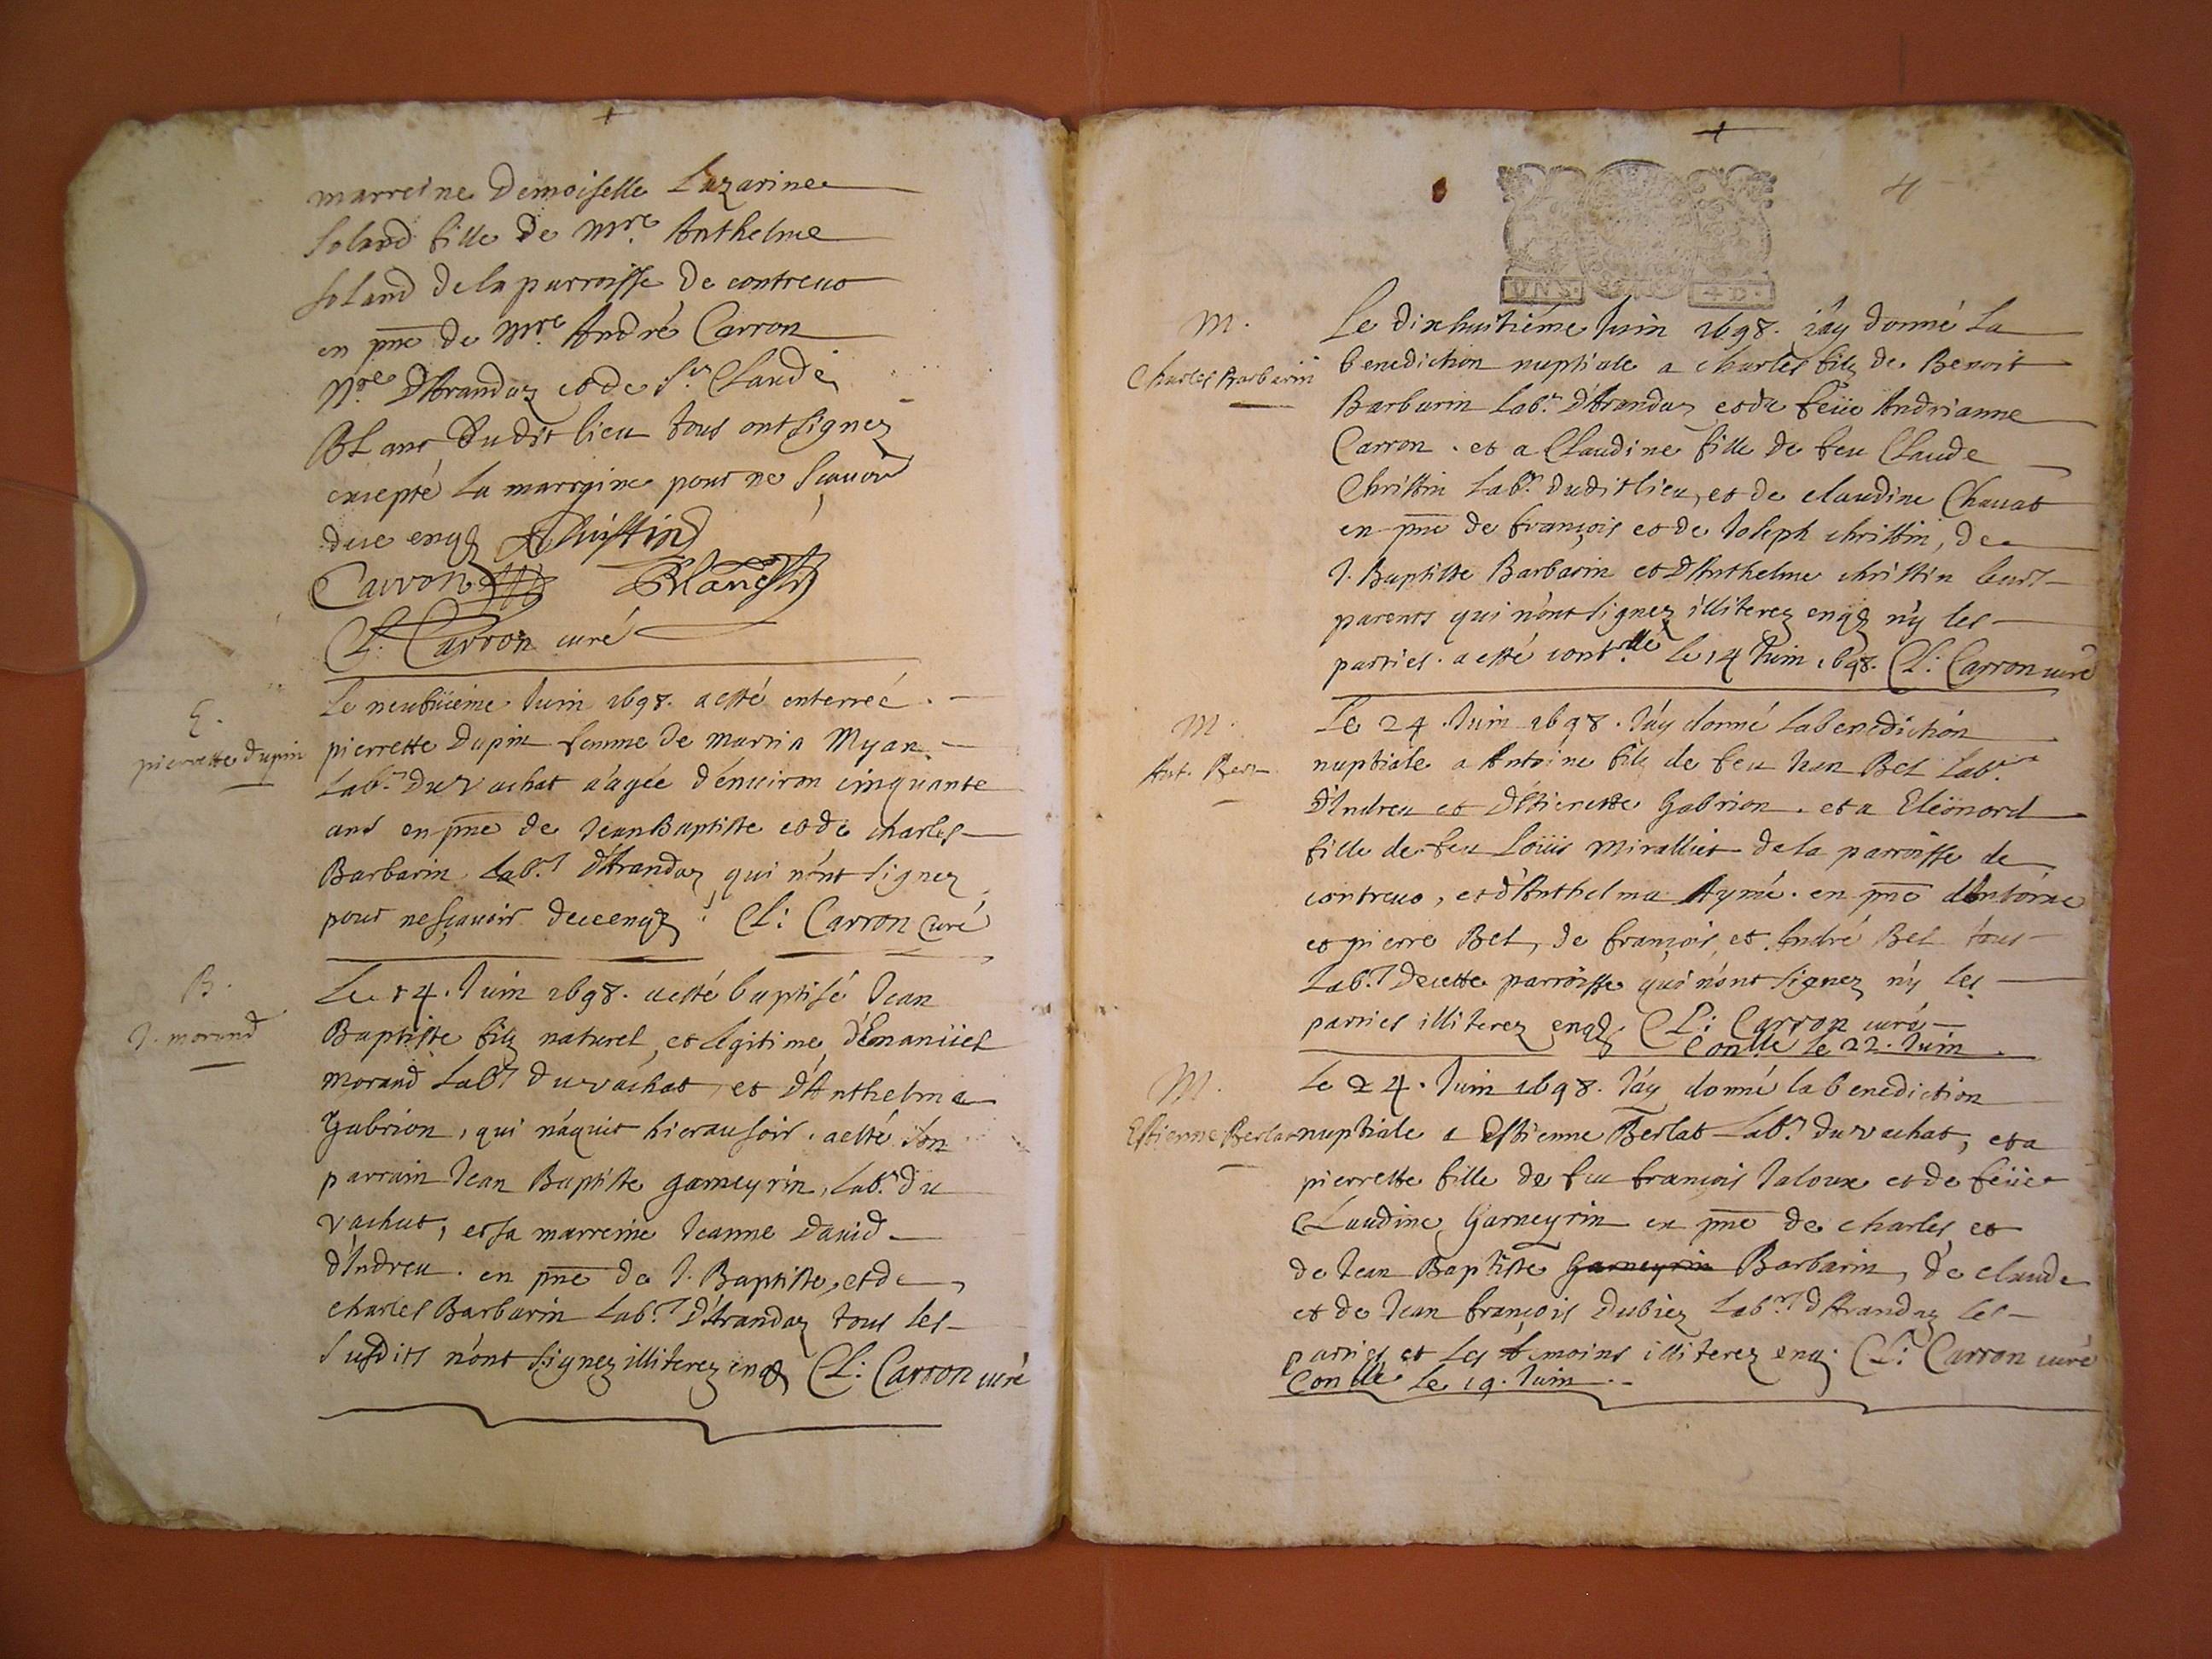 marreine Demoiselle Lazarine
soland fille de Mre Anthelme
soland de la parroisse de contreuo
en pñe de Mre André Carron
Nre D'Arandaz et de Sr Claude
Blanc dudit lieu tous ont signez
excepté la marreine pour ne sçauoir
de ce enqz Christin
Carron Blanchet
Cl: Carron curé
E.
pierrette dupin
Le neufuieme Juin 1698. a esté enterreé
pierrette Dupin femme de martin Myan
Labr. du vachat aágée d'enuiron cinquante
ans en pñe de Jean Baptiste et de charles
Barbarin Labrs d'Arandaz qui n'ont signez
pour ne sçauoir de ce enqz. Cl: Carron Curé
B.
J. morand
Le 14. Juin 1698. a esté baptisé Jean
Baptiste filz naturel, et legitime d'Emanüel
Morand Labr du vachat et d'Anthelma
Gabrion, qui náquit hier au soir. a esté son
parrain Jean Baptiste garneyrin, Labr. du
vachat, et sa marreine Jeanne Dauid
d'Indreu. en pñe de J. Baptiste, et de
charles Barbarin Labrs D'Arandaz tous les
susdits n'ont signez illiterez enqz Cl: Carron curé
4
UNS. 4D.
M.
Charles Barbarin
Le dixhuitiéme Juin 1698. j'ay donné La
benediction nuptiale a charles filz de Benoit
Barbarin Labr. d'Arandaz et de feüe Andrianne
Carron. et a Claudine fille de feu Claude
Christin Labr. dudit lieu, et de claudine Chauat
en pñe de françois et de Joseph christin, de
J. Baptiste Barbarin et d'Anthelme christin leurs
parents qui n'ont signez illiterez enqz n'y les
parties. a esté contrllé le 14 Juin 1698. Cl: Carron curé
M.
Ant. Bet
Le 24. Juin 1698. J'ay donné la benediction
nuptiale a Antoine filz de feu Jean Bet Labr.
d'Indreu et d'Estienette Gabrion. et a Eleönord
fille de feu Loüis Miralliet de la parroisse de
contreuo, et d'Anthelma Aymé. en pñe d'Antoine
et pierre Bet, de françois, et André Bet tous
Labrs de cette parroisse qui n'ont signez n'y les
parties illiterez enqz. Cl: Carron curé
Conllé le 22. Juin.
M.
Estienne Berlat
Le 24. Juin 1698. J'ay donné la benediction
nuptiale a Estienne Berlat Labr. du vachat, et a
pierrette fille de feu françois Jaloux et de feüe
Claudine Garneyrin en pñe de charles, et
de Jean Baptiste Garneyrin Barbarin, de claude
et de Jean françois Dubiez Labrs d'Arandaz les
parties et les temoins illiterez enq. Cl: Carron curé
Conllé le 19. Juin.